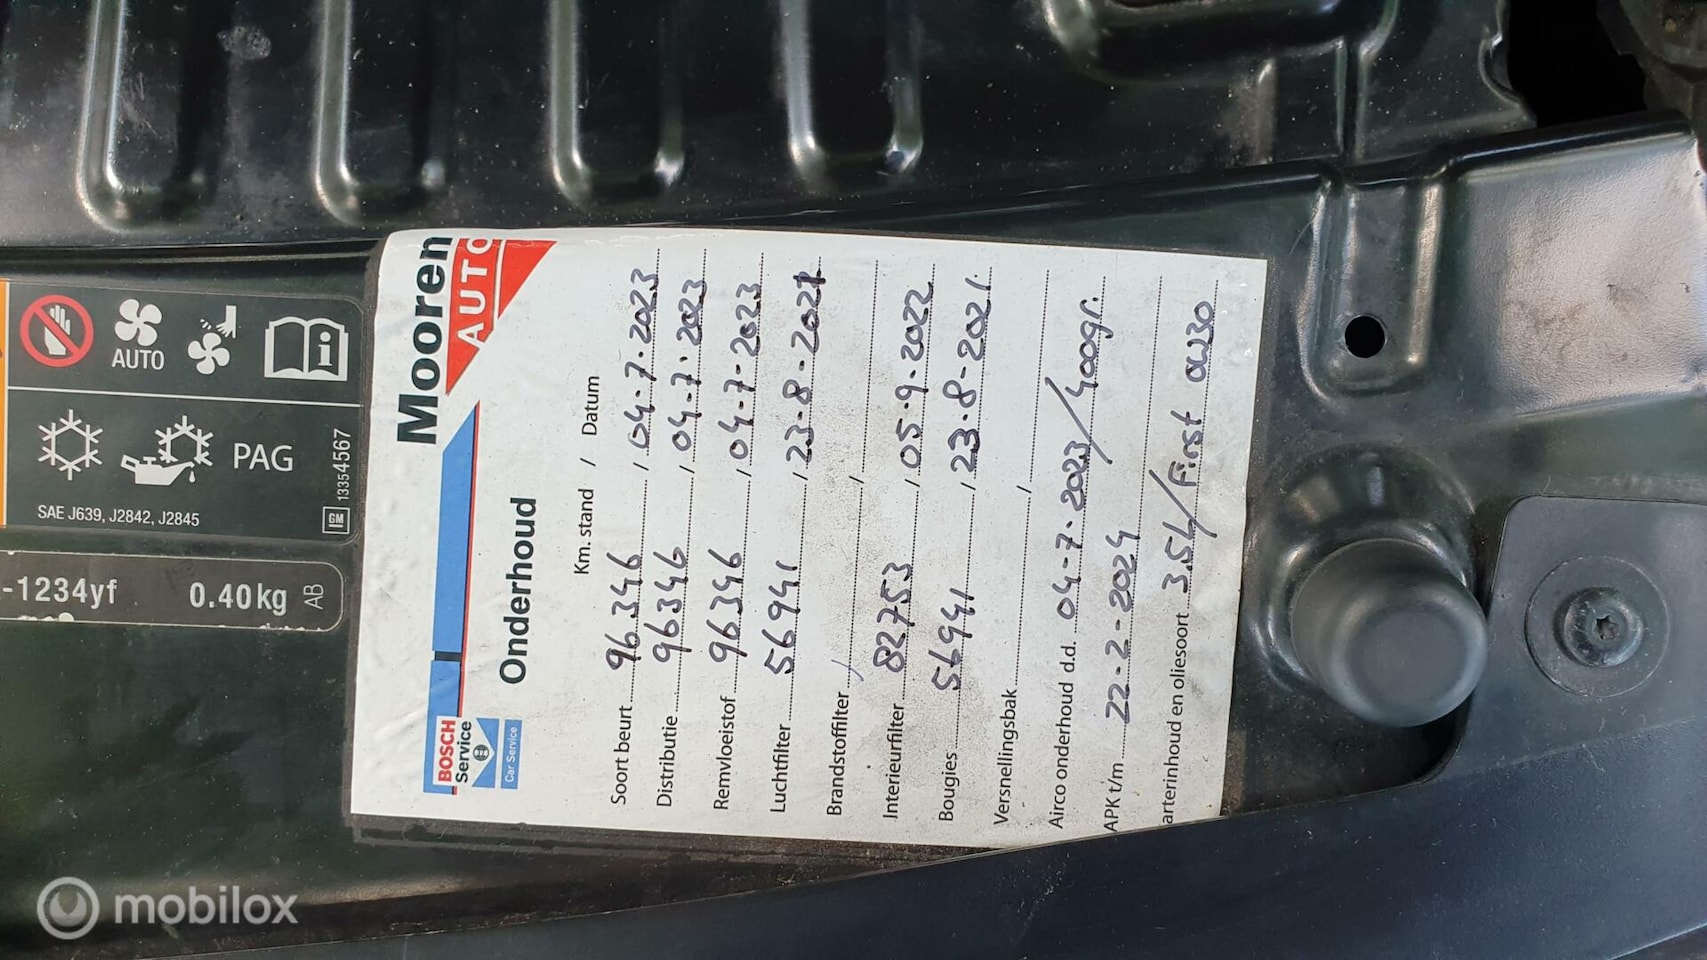 AUTO
PAG
SAE J639, J2842, J2845
13354567
GM
-1234yf 0.40kg AB
Mooren
AUTO
BOSCH
Service
Car Service
Onderhoud
Km. stand / Datum
Soort beurt 96346 / 04-7-2023
Distributie 96346 / 04-7-2023
Remvloeistof 96346 / 04-7-2023
Luchtfilter 56941 / 23-8-2021
Brandstoffilter /
Interieurfilter 82753 / 05-9-2022
Bougies 56941 / 23-8-2021
Versnellingsbak /
Airco onderhoud d.d. 04-7-2023/400gr.
APK t/m 22-2-2024
arterinhoud en oliesoort 3.5L/First 0W30
mobilox